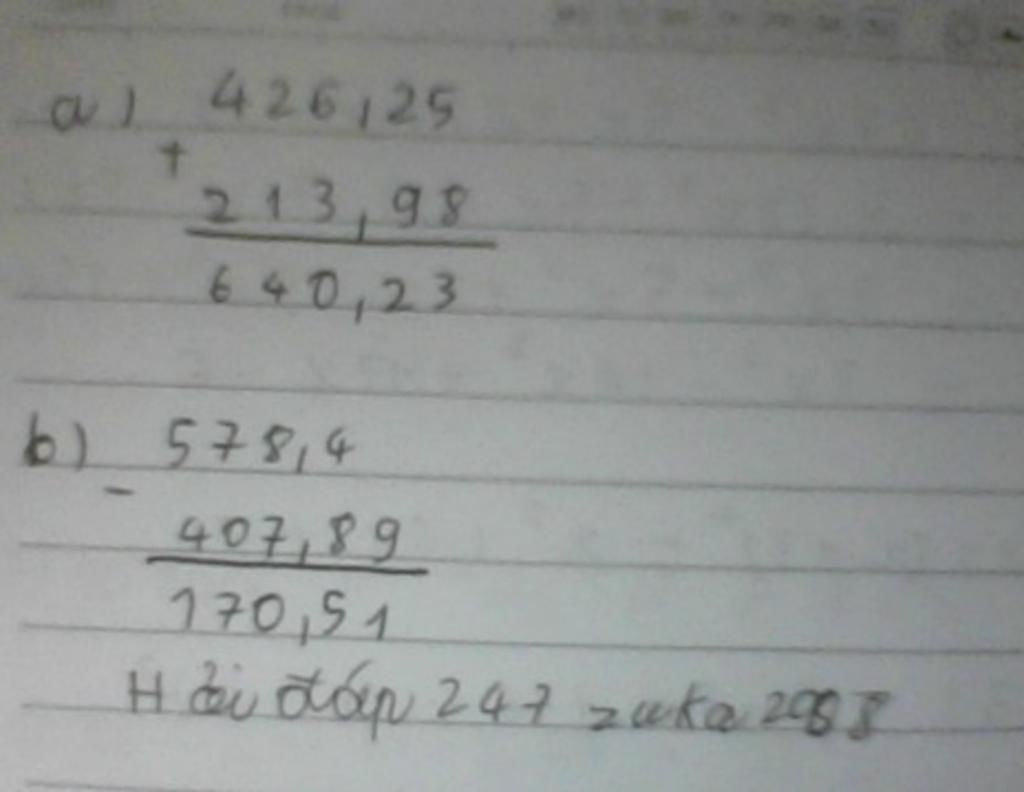 a) 426,25
+
213,98
640,23
b) 578,4
-
407,89
170,51
Hỏi đáp 247 zuka